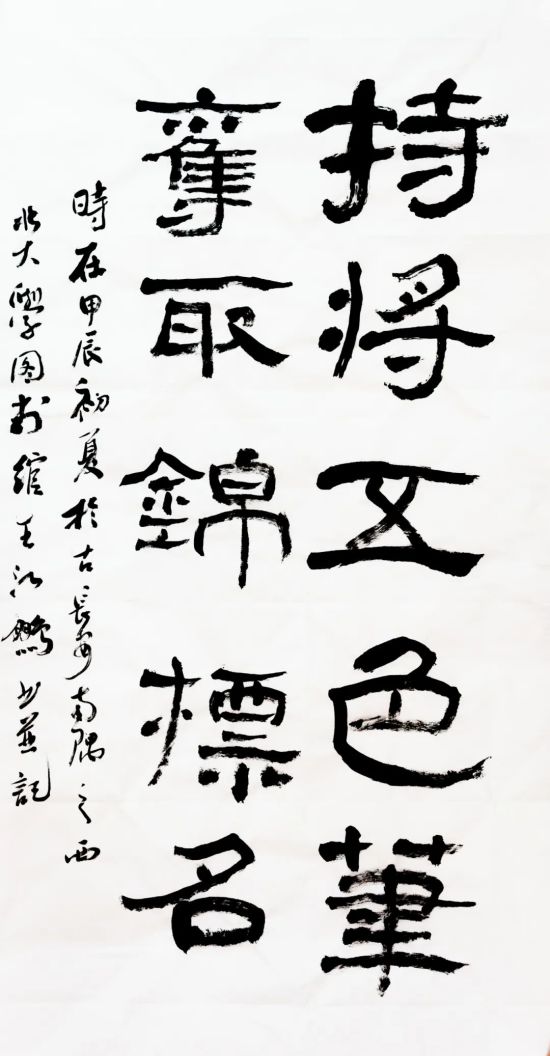 持将五色筆
奪取錦標名
時在甲辰初夏於古長安南隅之西
北大學图書館王江鵬书并記